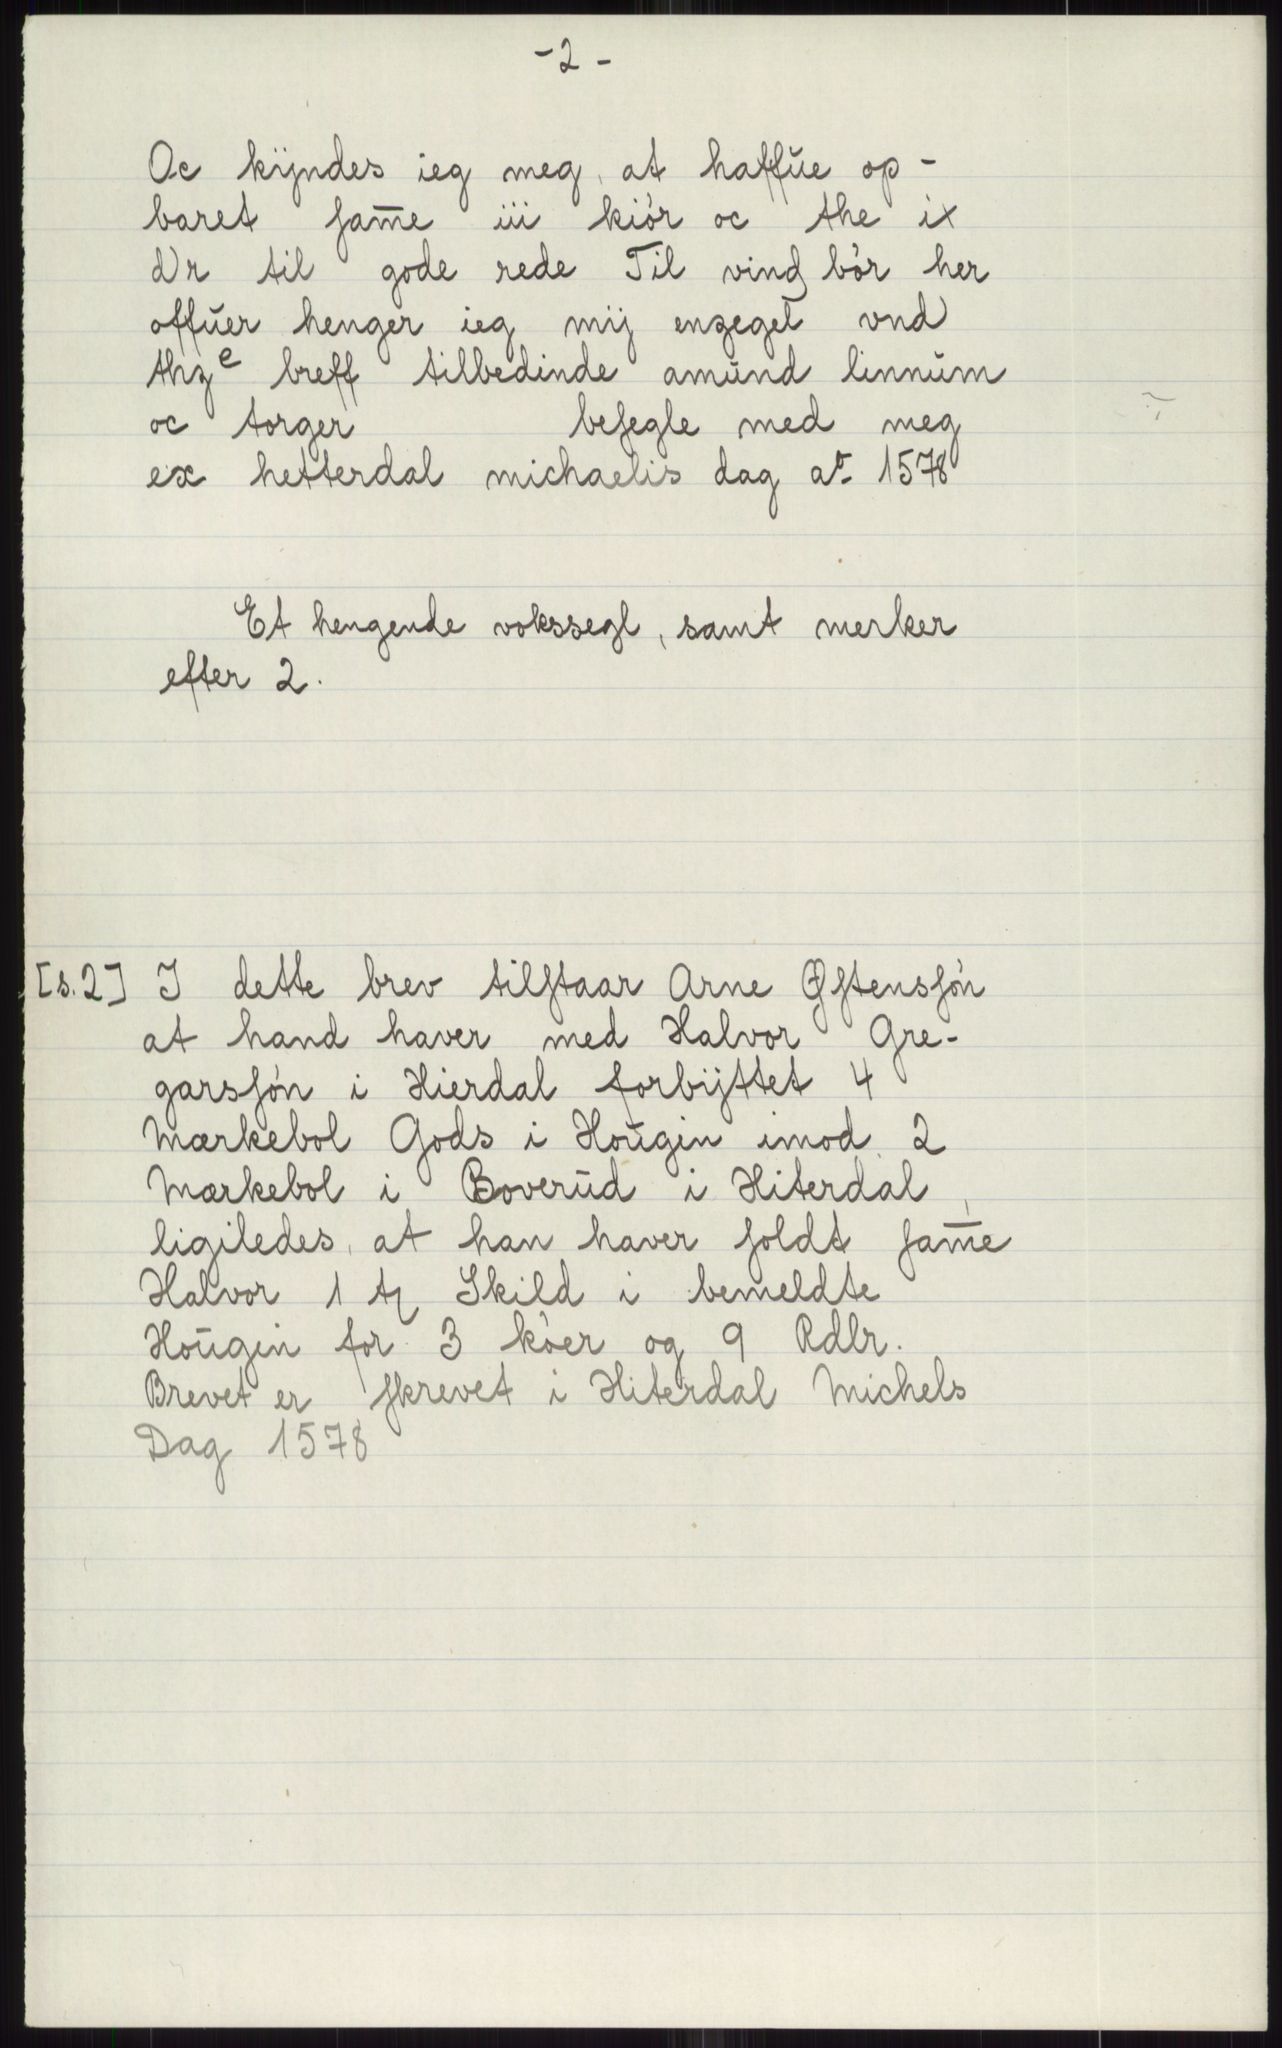 - 2 -
Oc kÿndes ieg meg, at haffůe op-
baret ſam̅e iii kiór oc the ix
dr til gode rede Til vind bór her
offůer henger ieg mij enzegel vnd
thzᵉ breff tilbedinde amůnd linnům
oc torger beſegle med meg
ex hetterdal michaelis dag aº 1578
Et hengende vokssegl, samt merker
efter 2.
[s. 2] I dette brev tilſtaar Arne Øſtensſón
at hand haver med Halvor Gre-
garsſón i Hierdal forbÿttet 4
Mærkebol Gods i Hoůgin imod 2
Mærkebol i Boverůd i Hiterdal,
ligiledes, at han haver ſoldt ſam̅e
Halvor 1 Skild i bemeldte
Hoůgin for 3 kóer og 9 Rdlr.
Brevet er ſkrevet i Hiterdal Michels
Dag 1578